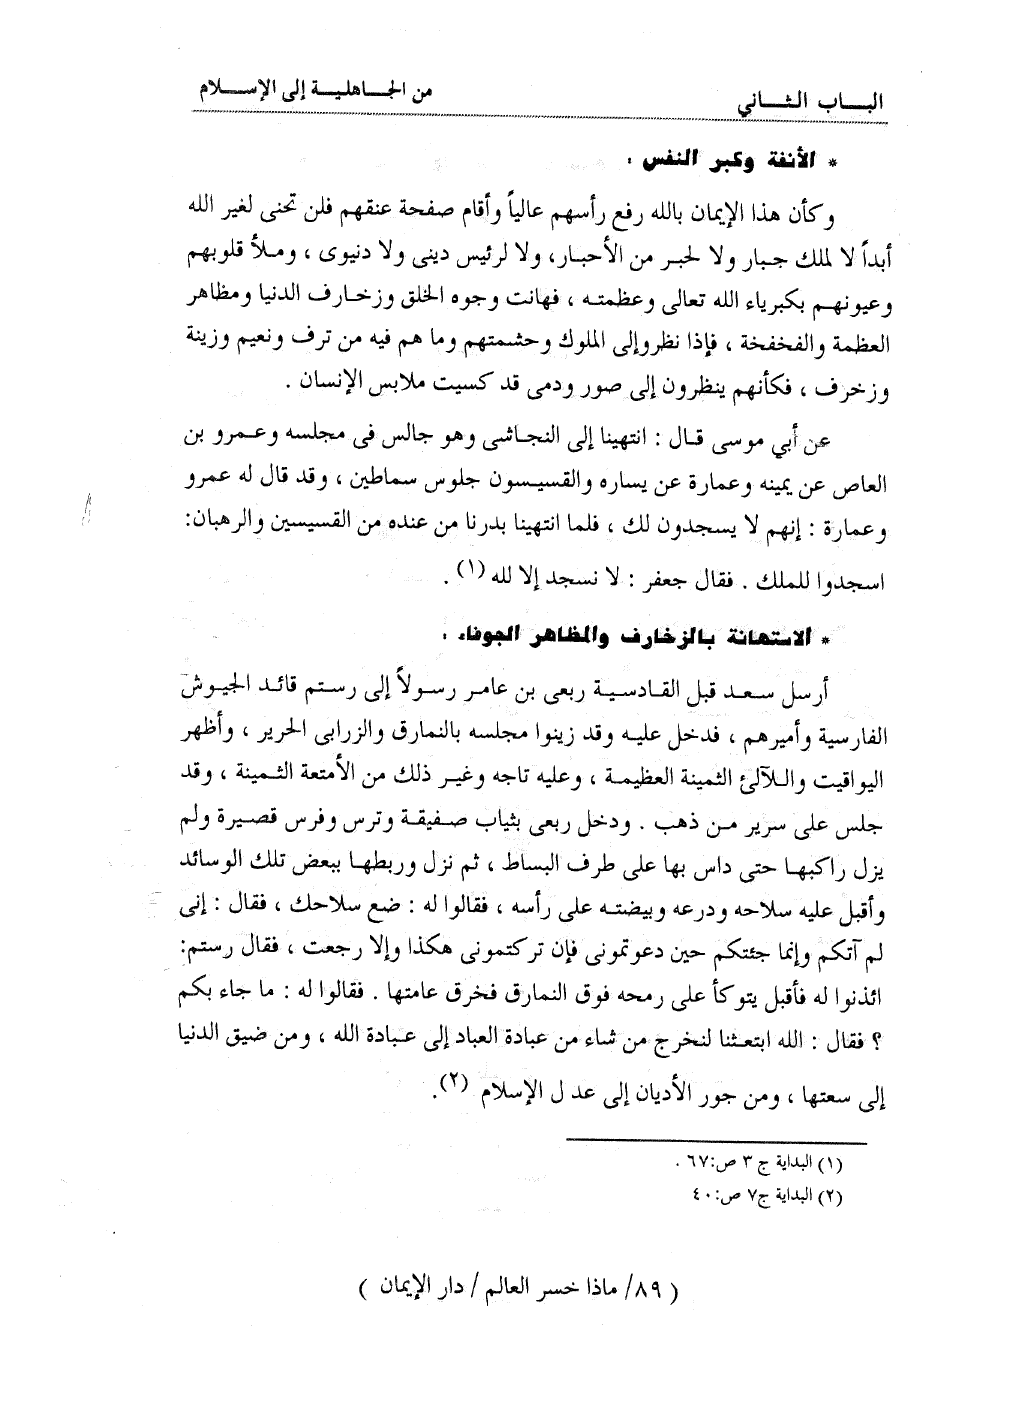 الباب الثاني من الجاهلية إلى الإسلام
* الأنفة وكبر النفس :
وكأن هذا الإيمان بالله رفع رأسهم عالياً وأقام صفحة عنقهم فلن تحنى لغير الله
أبداً لا لملك جبار ولا لحبر من الأحبار، ولا لرئيس دينى ولا دنيوى ، وملأ قلوبهم
وعيونهم بكبرياء الله تعالى وعظمته ، فهانت وجوه الخلق وزخارف الدنيا ومظاهر
العظمة والفخفخة ، فإذا نظروإلى الملوك وحشمتهم وما هم فيه من ترف ونعيم وزينة
وزخرف ، فكأنهم ينظرون إلى صور ودمى قد كسيت ملابس الإنسان .
عن أبي موسى قال : انتهينا إلى النجاشى وهو جالس فى مجلسه وعمرو بن
العاص عن يمينه وعمارة عن يساره والقسيسون جلوس سماطين ، وقد قال له عمرو
وعمارة : إنهم لا يسجدون لك ، فلما انتهينا بدرنا من عنده من القسيسين والرهبان:
اسجدوا للملك . فقال جعفر : لا نسجد إلا لله (١) .
* الاستهانة بالزخارف والمظاهر الجوفاء :
أرسل سعد قبل القادسية ربعى بن عامر رسولاً إلى رستم قائد الجيوش
الفارسية وأميرهم ، فدخل عليه وقد زينوا مجلسه بالنمارق والزرابى الحرير ، وأظهر
اليواقيت واللآلئ الثمينة العظيمة ، وعليه تاجه وغير ذلك من الأمتعة الثمينة ، وقد
جلس على سرير من ذهب . ودخل ربعى بثياب صفيقة وترس وفرس قصيرة ولم
يزل راكبها حتى داس بها على طرف البساط ، ثم نزل وربطها ببعض تلك الوسائد
وأقبل عليه سلاحه ودرعه وبيضته على رأسه ، فقالوا له : ضع سلاحك ، فقال : إنى
لم آتكم وإنما جئتكم حين دعوتمونى فإن تركتمونى هكذا وإلا رجعت ، فقال رستم:
ائذنوا له فأقبل يتوكأ على رمحه فوق النمارق فخرق عامتها . فقالوا له : ما جاء بكم
؟ فقال : الله ابتعثنا لنخرج من شاء من عبادة العباد إلى عبادة الله ، ومن ضيق الدنيا
إلى سعتها ، ومن جور الأديان إلى عد ل الإسلام (٢).
(١) البداية ج ٣ ص:٦٧ .
(٢) البداية ج٧ ص:٤٠
( ٨٩/ ماذا خسر العالم / دار الإيمان )